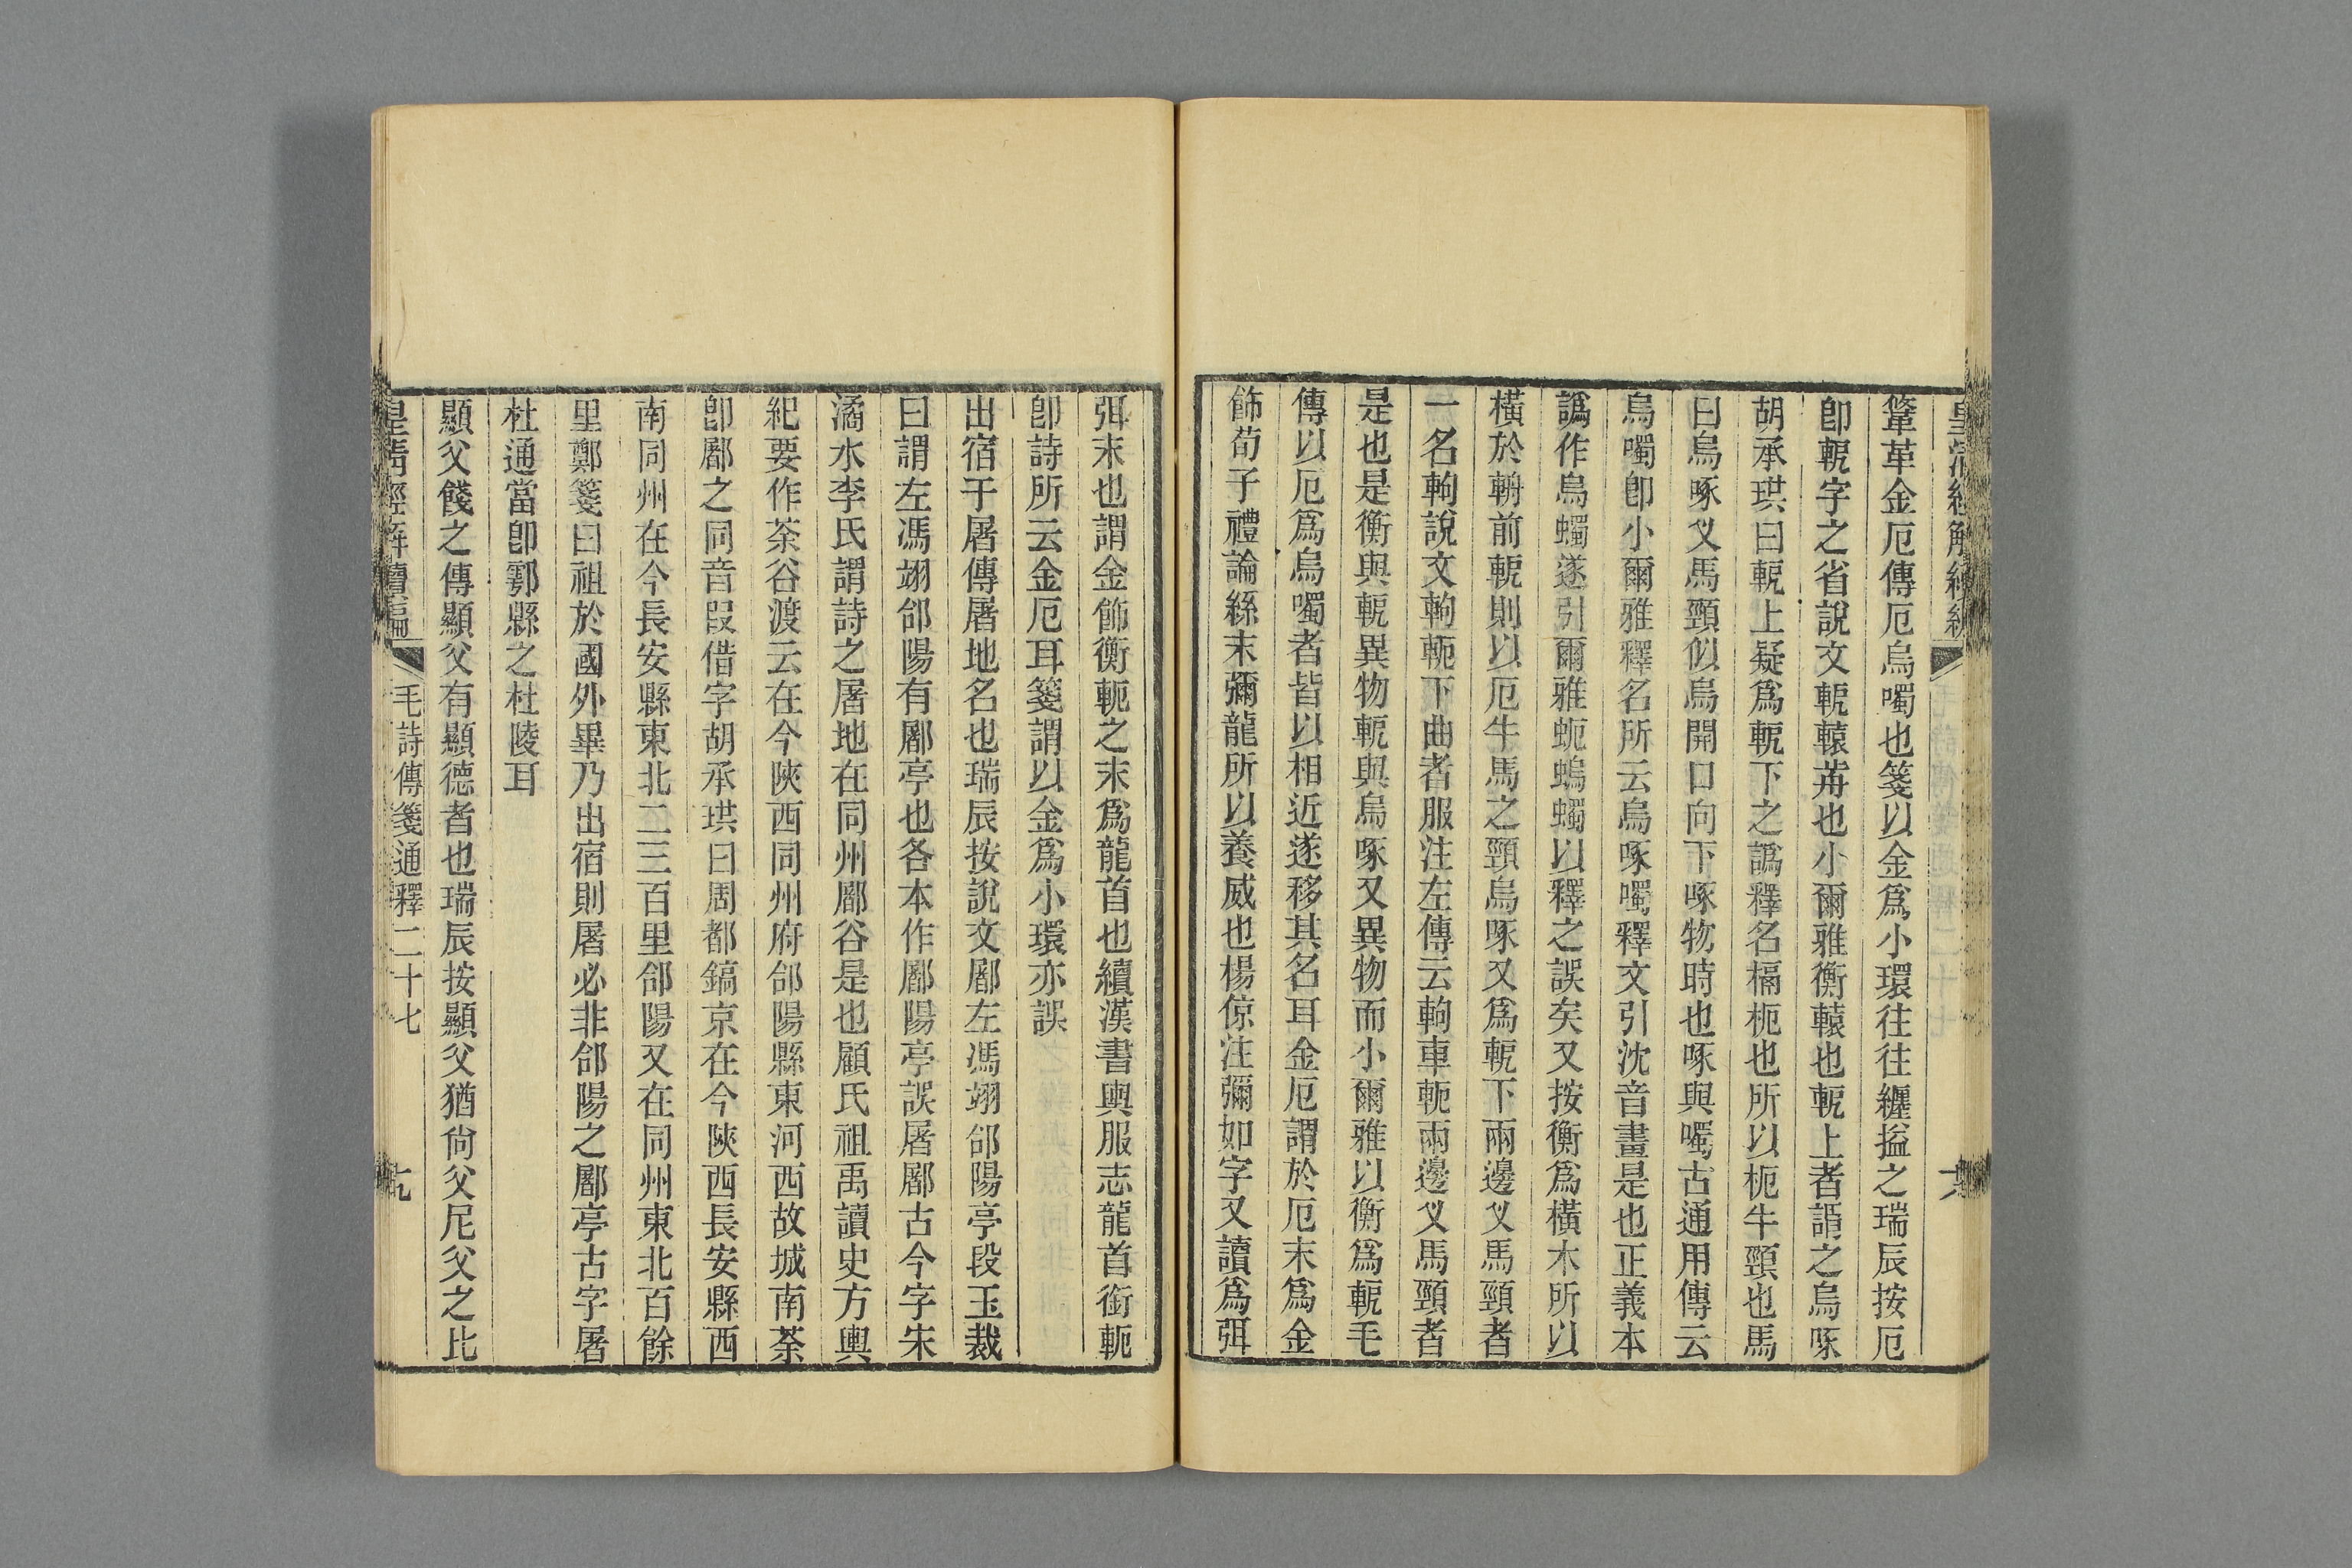 皇清經解續編
鞗革金厄傳厄烏噣也箋以金爲小環往往纏搤之瑞辰按厄
卽軶字之省說文軶轅歬也小爾雅衡轅也軶上者謂之烏啄
胡承珙曰軶上疑爲軶下之譌釋名槅枙也所以枙牛頸也馬
曰烏啄叉馬頸似烏開口向下啄物時也啄與噣古通用傳云
烏噣卽小爾雅釋名所云烏啄噣釋文引沈音畫是也正義本
譌作烏蠋遂引爾雅蚅螐蠋以釋之誤矣又按衡爲橫木所以
橫於輈前軶則以厄牛馬之頸烏啄又爲軶下兩邊叉馬頸者
一名軥說文軥軶下曲者服注左傳云軥車軶兩邊叉馬頸者
是也是衡與軶異物軶與烏啄又異物而小爾雅以衡爲軶毛
傳以厄爲烏噣者皆以相近遂移其名耳金厄謂於厄末爲金
飾荀子禮論絲末彌龍所以養威也楊倞注彌如字又讀爲弭
弭末也謂金飾衡軶之末爲龍首也續漢書輿服志龍首銜軶
卽詩所云金厄耳箋謂以金爲小環亦誤
出宿于屠傳屠地名也瑞辰按說文鄌左馮翊郃陽亭段玉裁
曰謂左馮翊郃陽有鄌亭也各本作鄌陽亭誤屠鄌古今字朱
潏水李氏謂詩之屠地在同州鄌谷是也顧氏祖禹讀史方輿
紀要作荼谷渡云在今陝西同州府郃陽縣東河西故城南荼
卽鄌之同音叚借字胡承珙曰周都鎬京在今陝西長安縣西
南同州在今長安縣東北二三百里郃陽又在同州東北百餘
里鄭箋曰祖於國外畢乃出宿則屠必非郃陽之鄌亭古字屠
杜通當卽鄠縣之杜陵耳
顯父餞之傳顯父有顯德者也瑞辰按顯父猶尙父尼父之比
皇清經解續編
毛詩傳箋通釋二十七